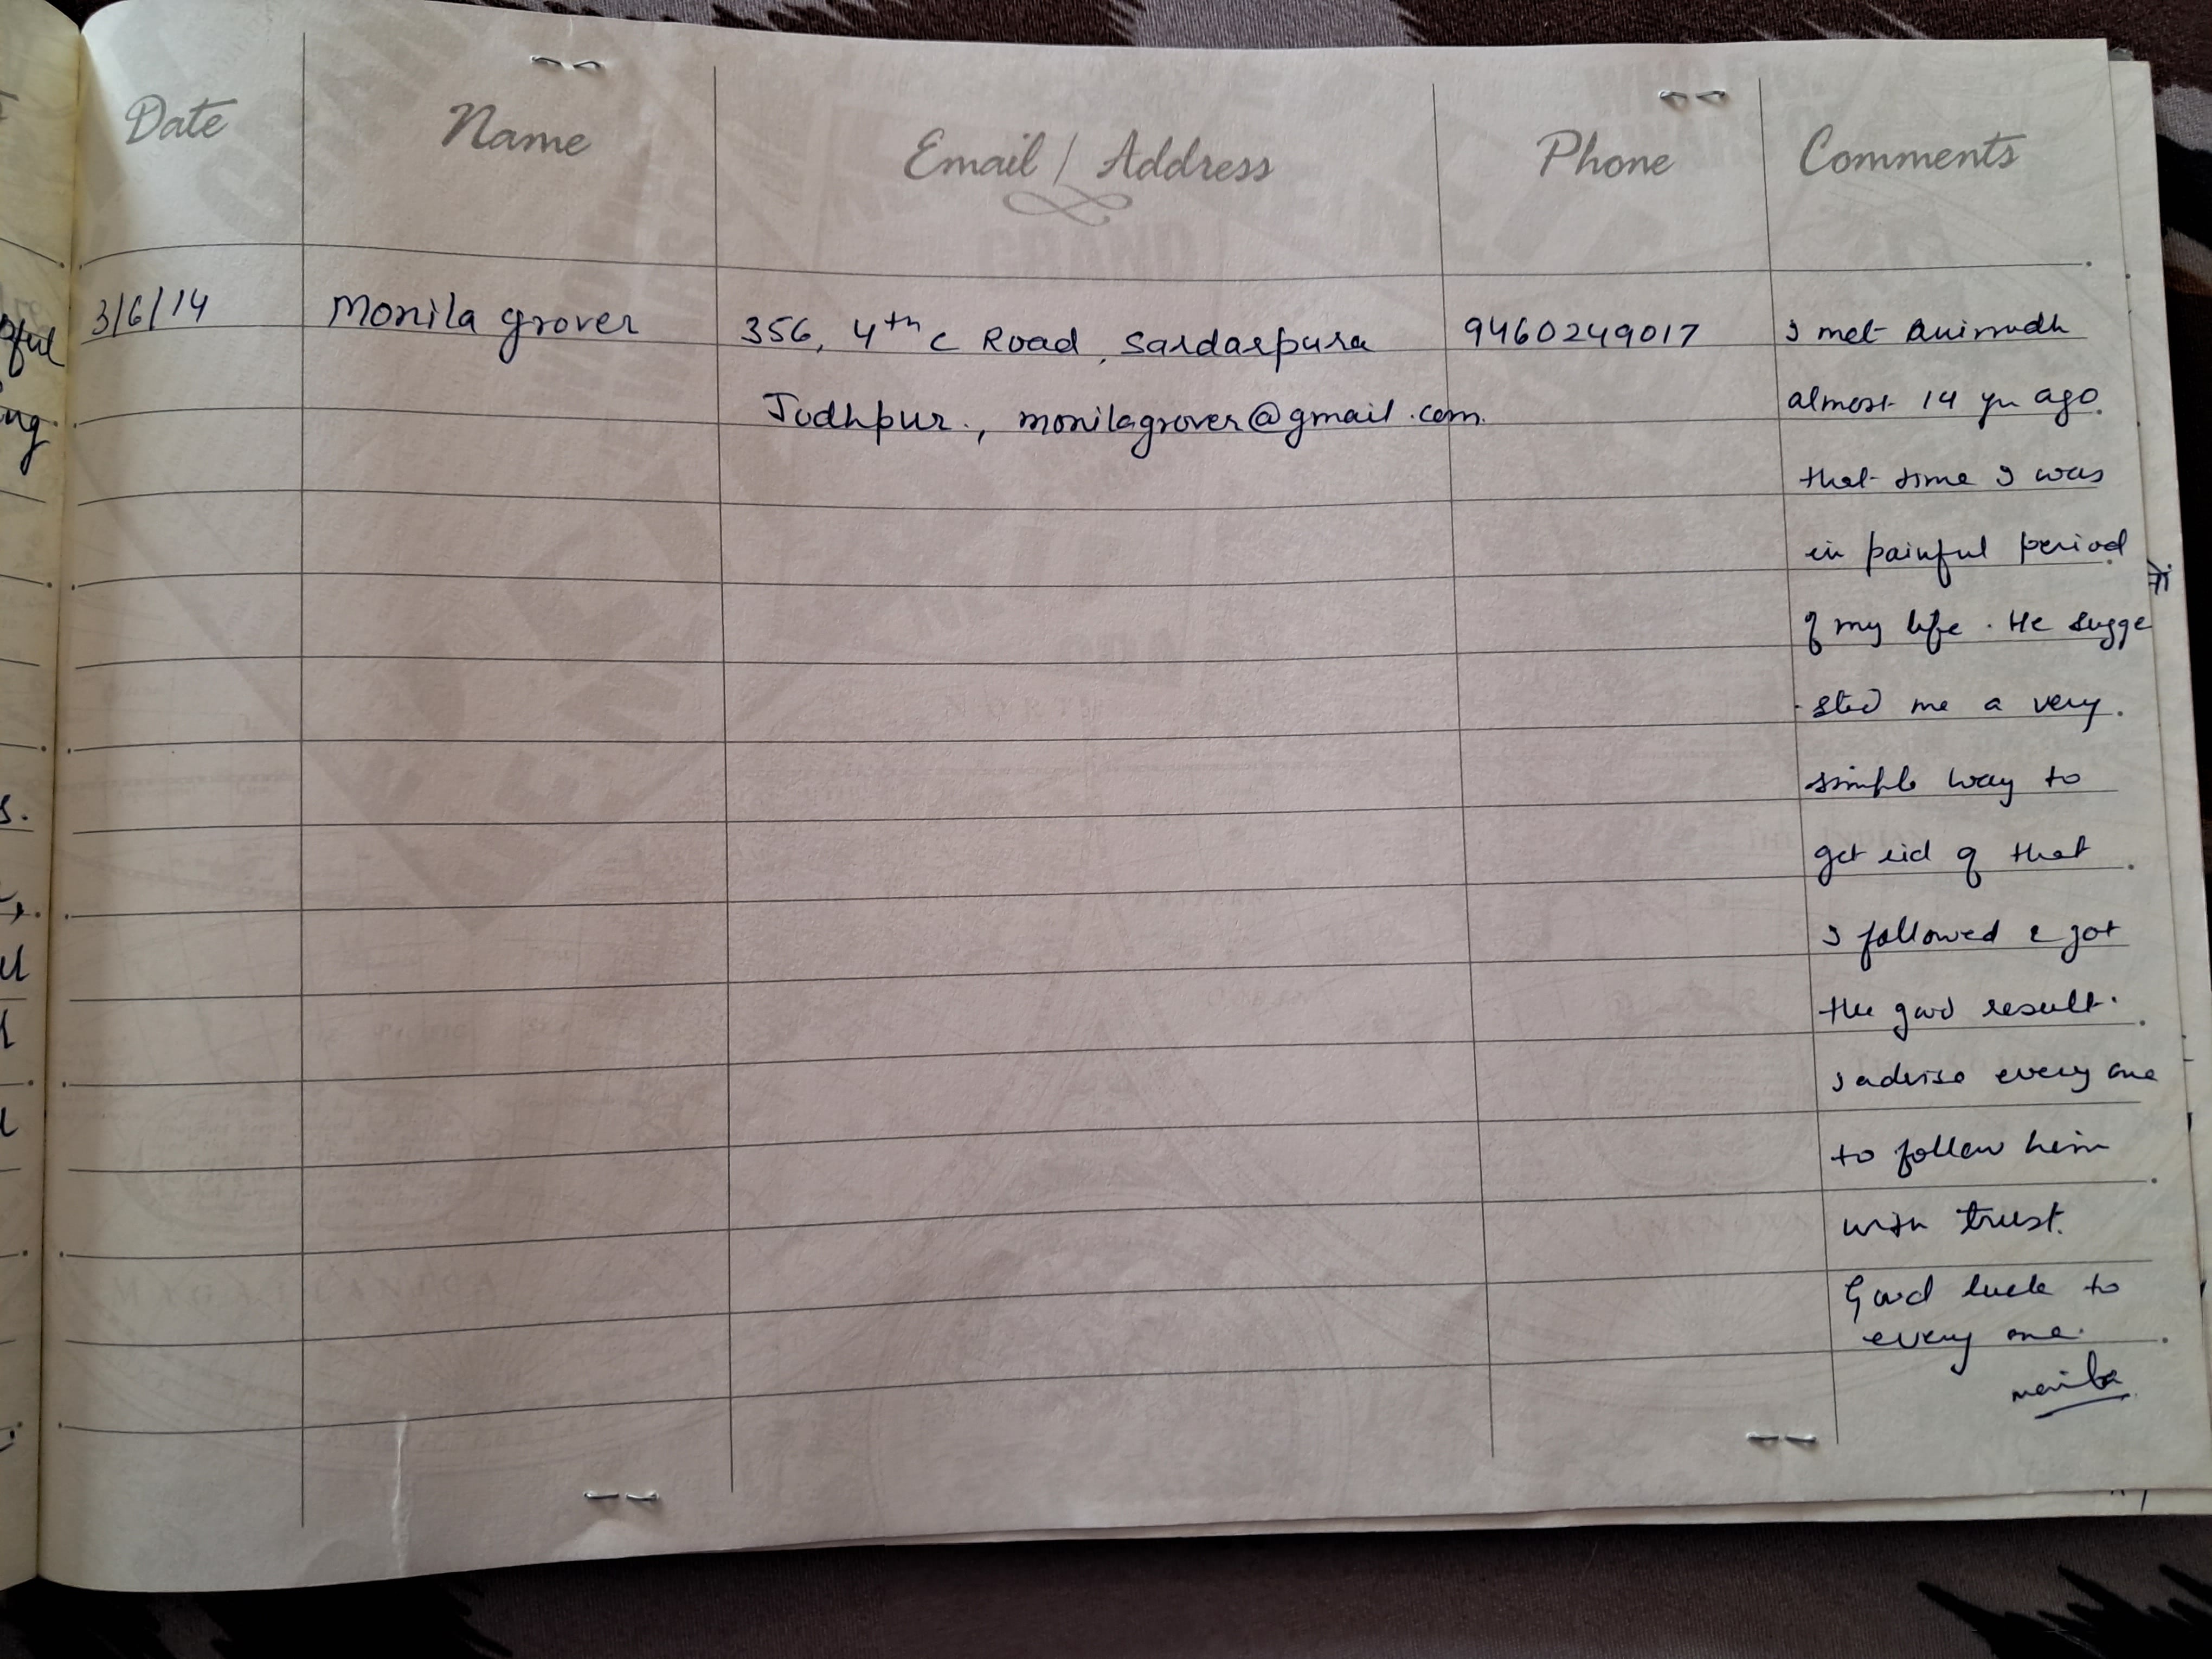 Date Name Email / Address Phone Comments
3/6/14 Monila grover 356, 4th C Road, Sardarpura 9460249017 I met Anirudh
Jodhpur., monilagrover@gmail.com. almost 14 yr ago.
that time I was
in painful period
of my life. He sugge
-sted me a very.
simple way to
get rid of that
I followed & got
the good result.
I advise every one
to follow him
with trust.
Good luck to
every one.
monila